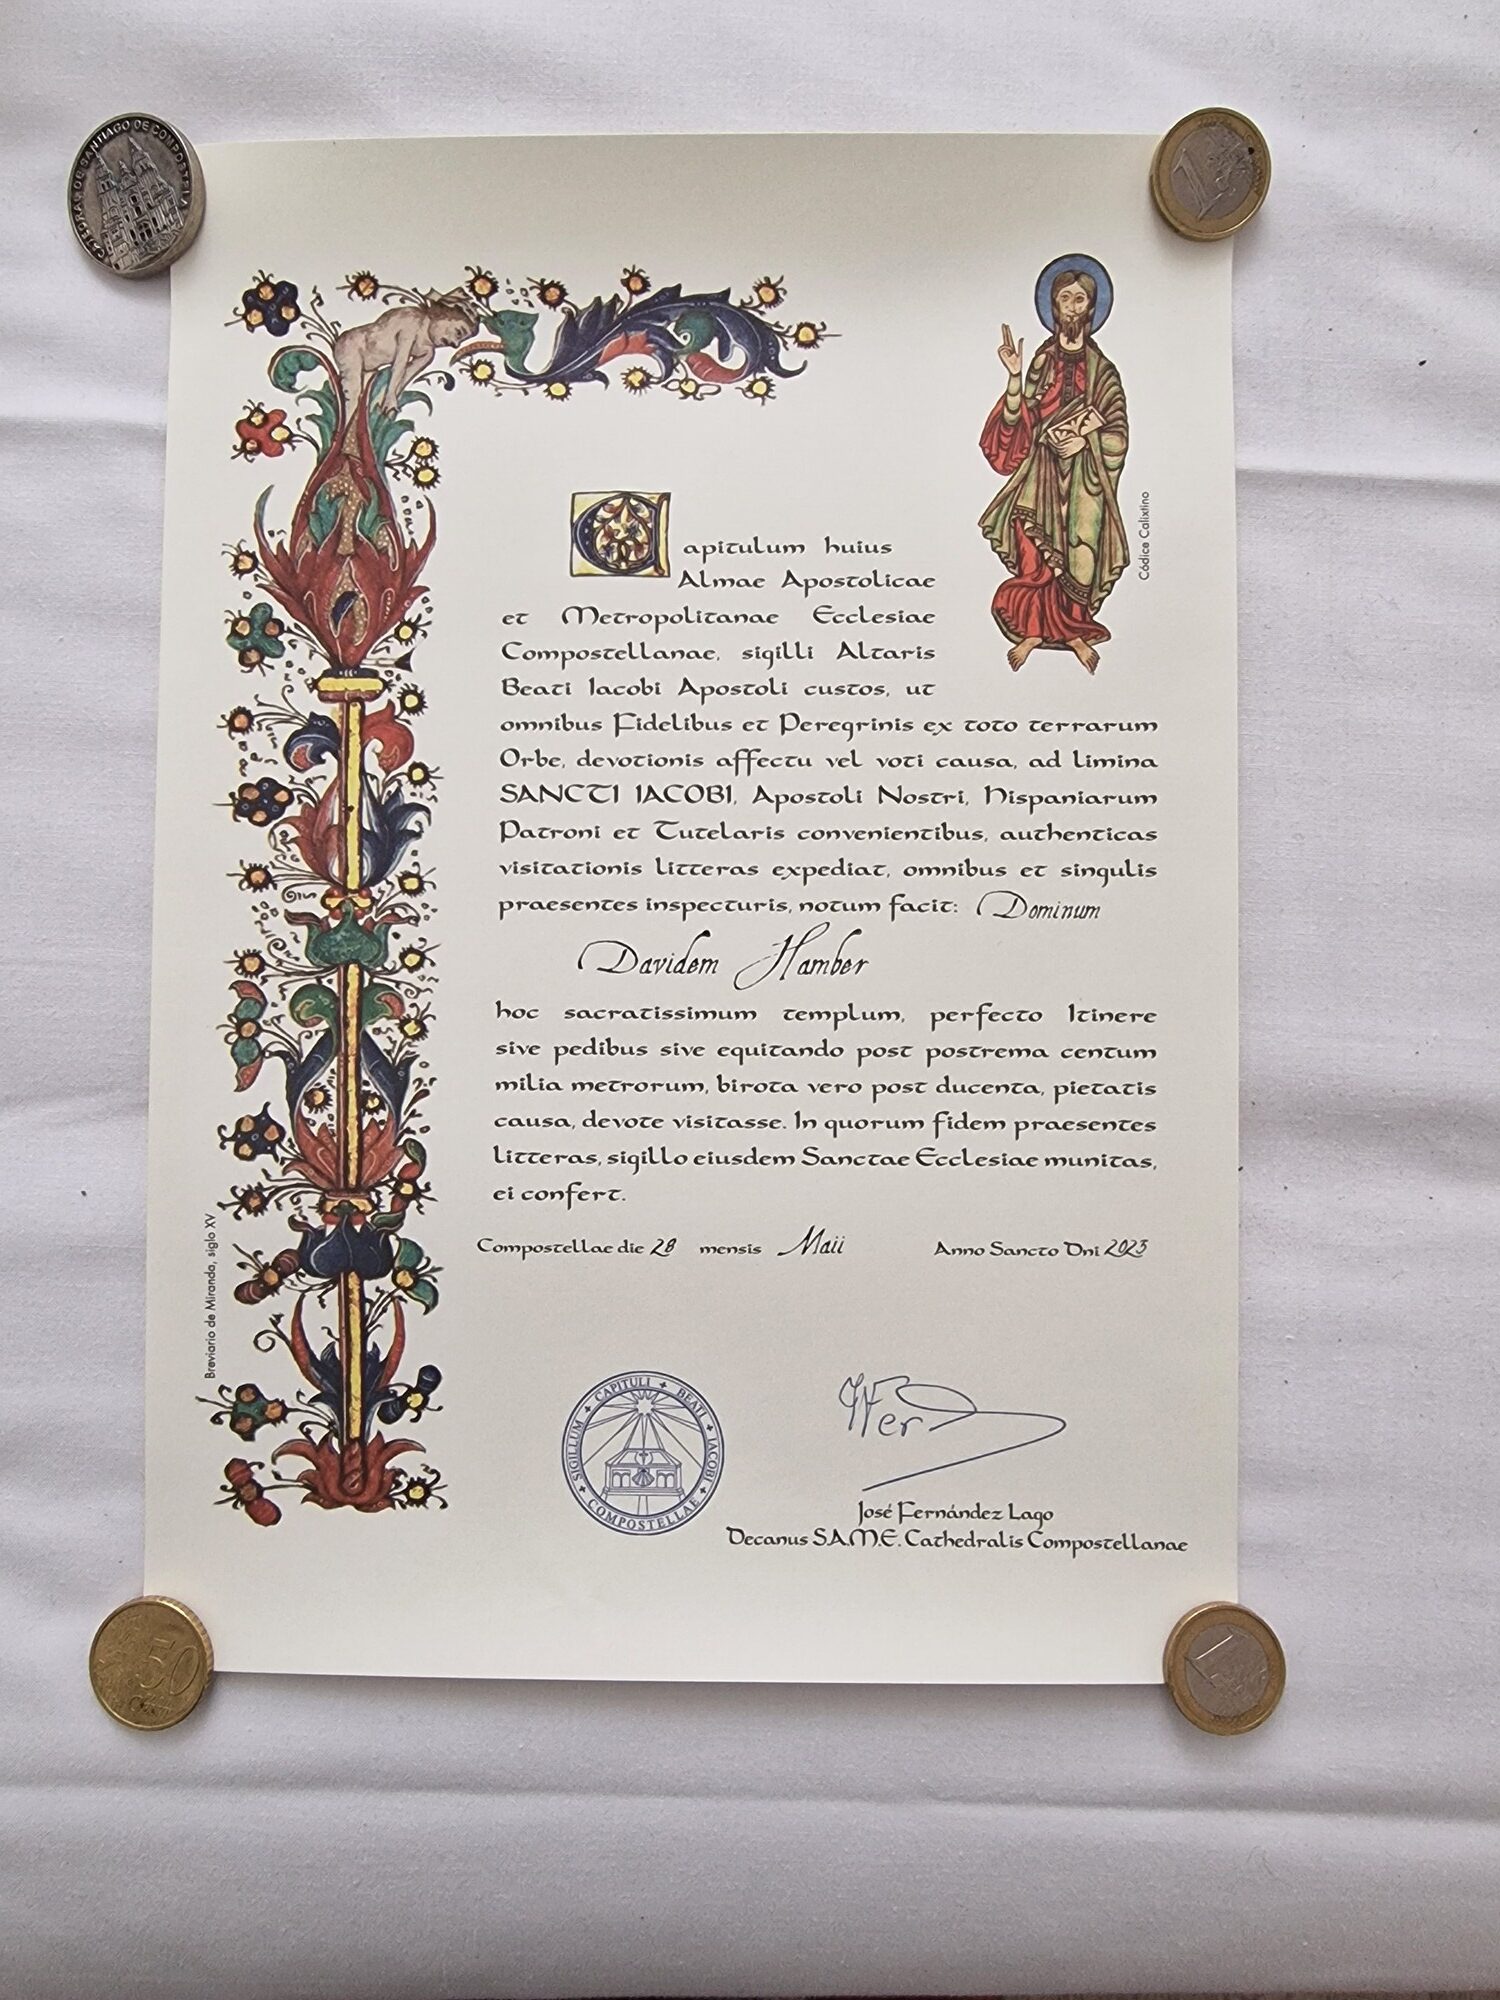 CATEDRAL DE SANTIAGO DE COMPOSTELA
1
Códice Calixtino
Capitulum huius
Almae Apostolicae
et Metropolitanae Ecclesiae
Compostellanae, sigilli Altaris
Beati Iacobi Apostoli custos, ut
omnibus Fidelibus et Peregrinis ex toto terrarum
Orbe, devotionis affectu vel voti causa, ad limina
SANCTI IACOBI, Apostoli Nostri, Hispaniarum
Patroni et Tutelaris convenientibus, authenticas
visitationis litteras expediat, omnibus et singulis
praesentes inspecturis, notum facit: Dominum
Davidem Hamber
hoc sacratissimum templum, perfecto Itinere
sive pedibus sive equitando post postrema centum
milia metrorum, birota vero post ducenta, pietatis
causa, devote visitasse. In quorum fidem praesentes
litteras, sigillo eiusdem Sanctae Ecclesiae munitas,
ei confert.
Compostellae die 28 mensis Maii Anno Sancto Dni 2023
Breviario de Miranda, siglo XV
SIGILLUM + CAPITULI + BEATI + IACOBI + COMPOSTELLAE +
José Fernández Lago
Decanus S.A.M.E. Cathedralis Compostellanae
50
1